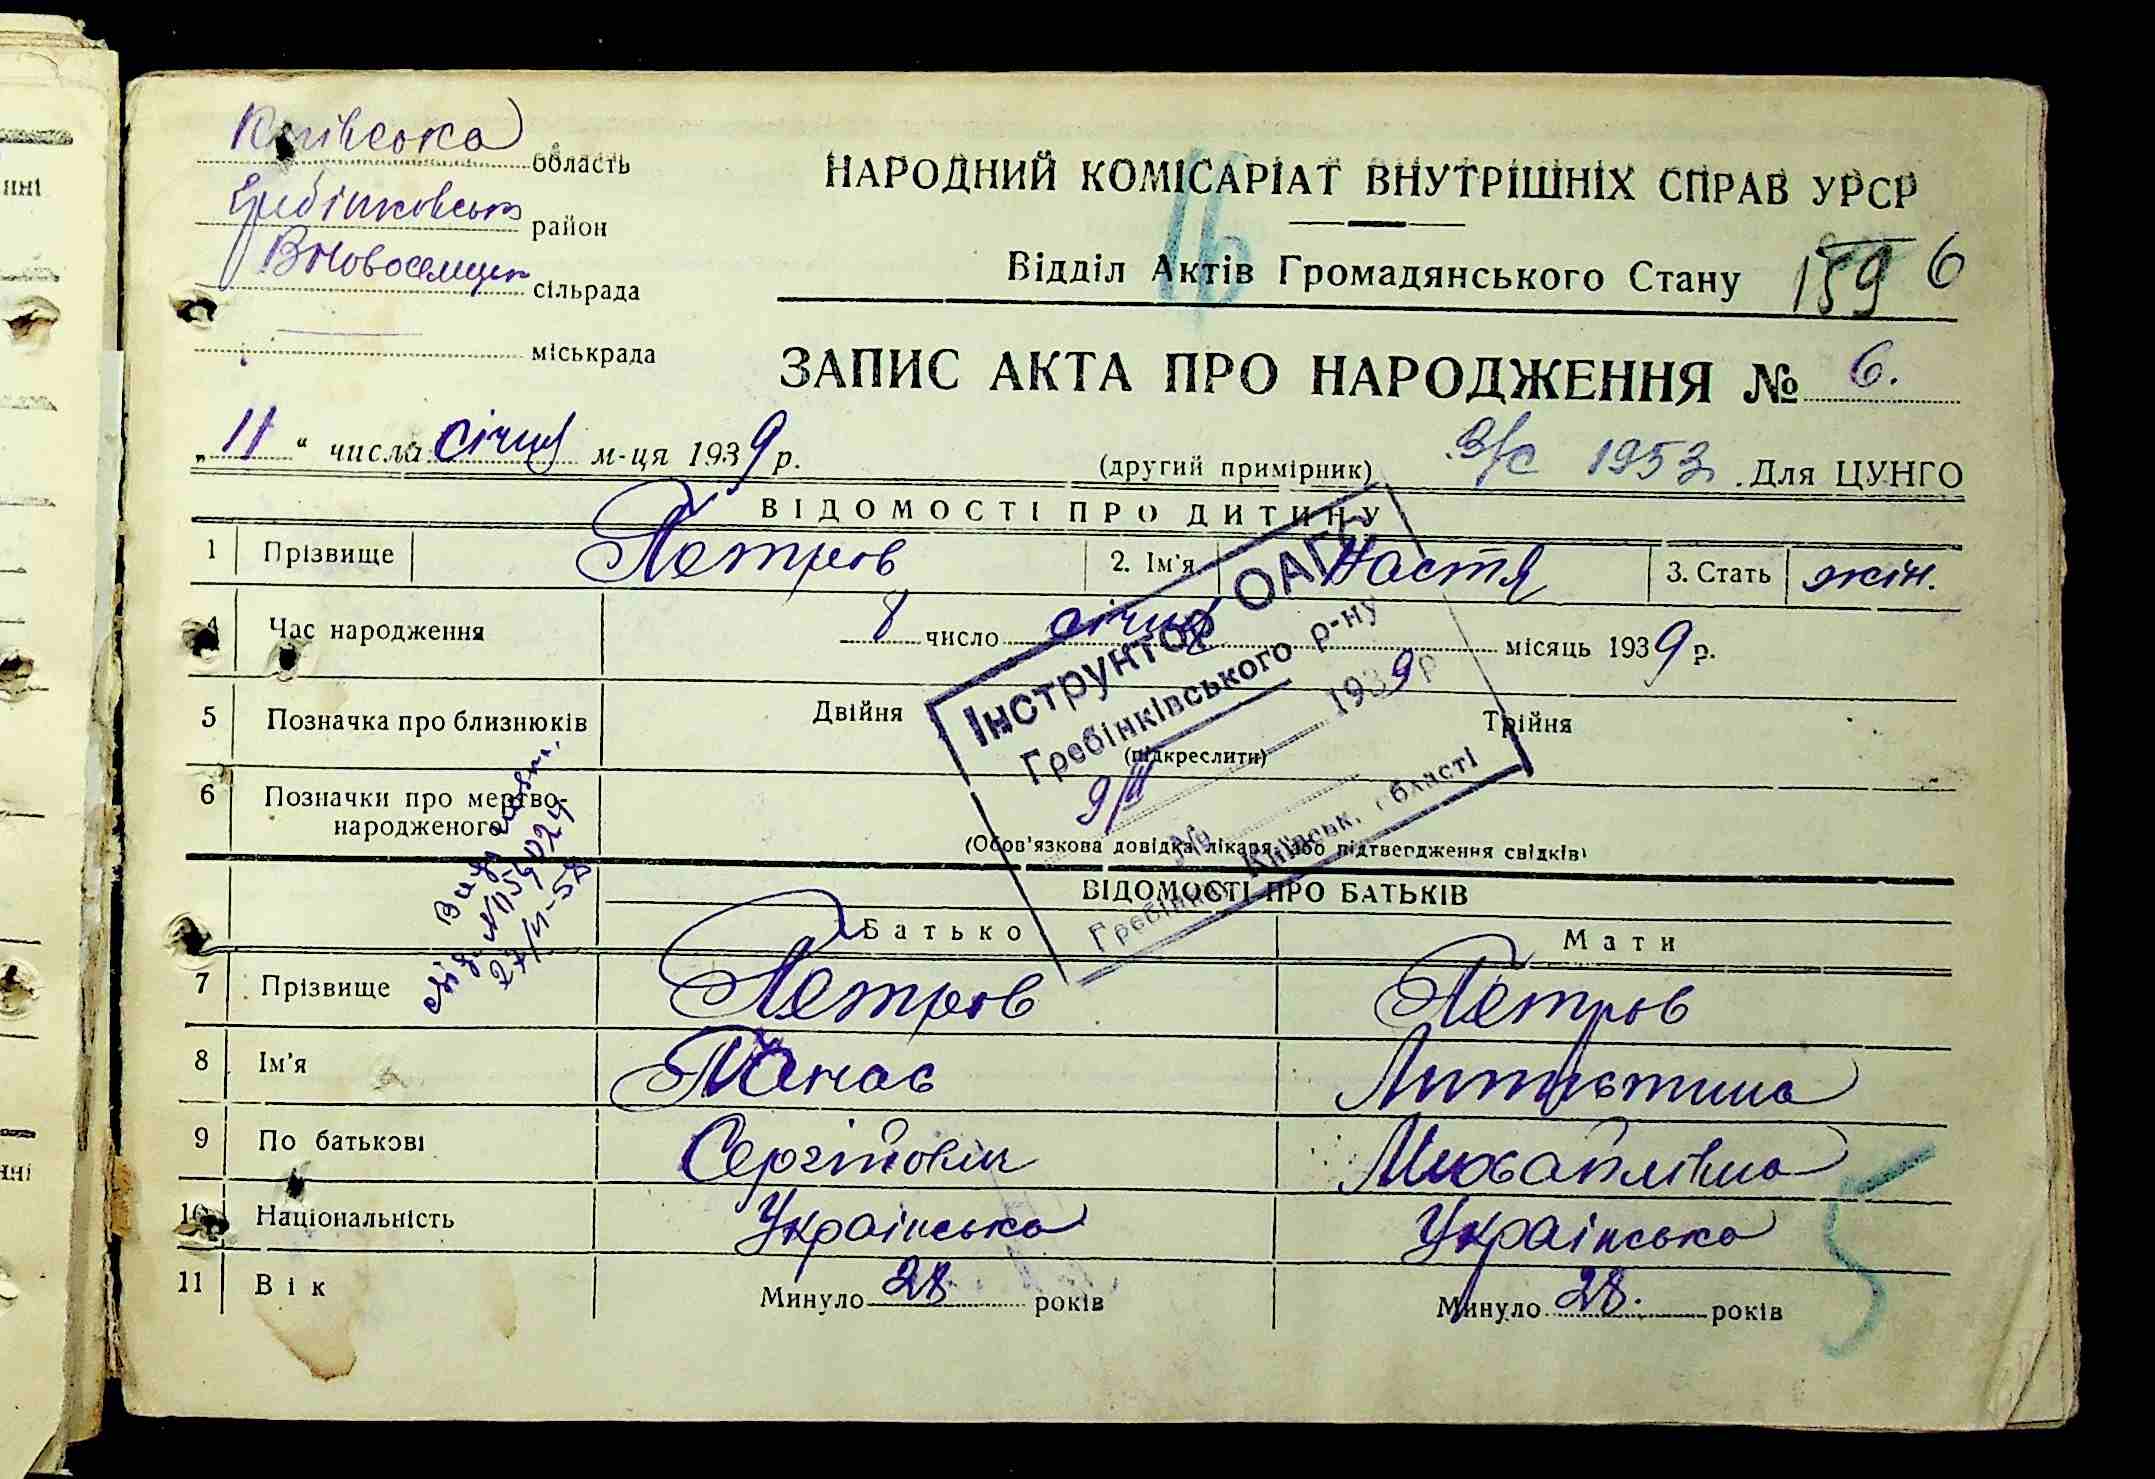 Київська область
Гребінковськ район
ВНовоселицьк сільрада
міськрада
НАРОДНИЙ КОМІСАРІАТ ВНУТРІШНІХ СПРАВ УРСР
Відділ Актів Громадянського Стану 159 6
16
ЗАПИС АКТА ПРО НАРОДЖЕННЯ № 6.
„11“ числа січня м-ця 1939 р.
(другий примірник) З/с 1953 Для ЦУНГО
ВІДОМОСТІ ПРО ДИТИНУ
1 Прізвище Петров 2. Ім'я Настя 3. Стать жін.
4 Час народження 8 число січня місяць 1939 р.
5 Позначка про близнюків Двійня Трійня
(підкреслити)
6 Позначки про мертво-
народженого
(Обов'язкова довідка лікаря, або підтвердження свідків)
Інструктор ОАГС
Гребінківського р-ну
9/II 1939 р
№
Гребінки, Київськ. області
№ 1159024
27/VI-58
ВІДОМОСТІ ПРО БАТЬКІВ
Батько Мати
7 Прізвище Петров Петров
8 Ім'я Панас
9 По батькові Сергійович Михайлівна
10 Національність Українська Українська
11 Вік Минуло 28 років Минуло 28. років
нні
нні